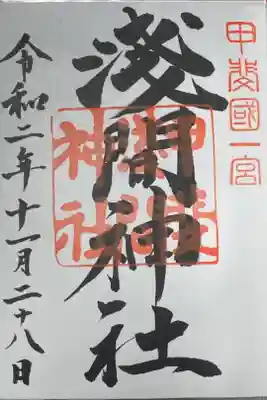 甲斐國一宮
淺間神社
令和二年十一月二十八日